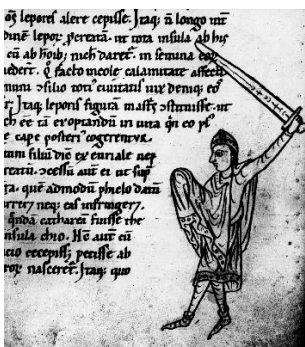 os lepores alere cepisse. Itaq; ñ longo int
dine lepor. ꝑcreata. ut tota insula ab his
cū ab hoib; nich daret̄. in semina eoꝝ
ederet. Q facto incole calamitate affecti
muni ɔsilio toti' ciuitatis uix deniq; eos
t; Itaq; leporis figurā ɔstituisse. ut
ch eē tā exoptandū in uita qn eo pl'
e capē posteri cogerentur.
tum filiū diē ex euriale nep
creatū. ɔcessū aut ei ut sup
ra. quē admodū phelo datū
urrer; neq; eas infringer;
qndā fuisse the
nsula chio. He aut cū
cio eccepiss; petisse ab
nasceret. Itaq; quo